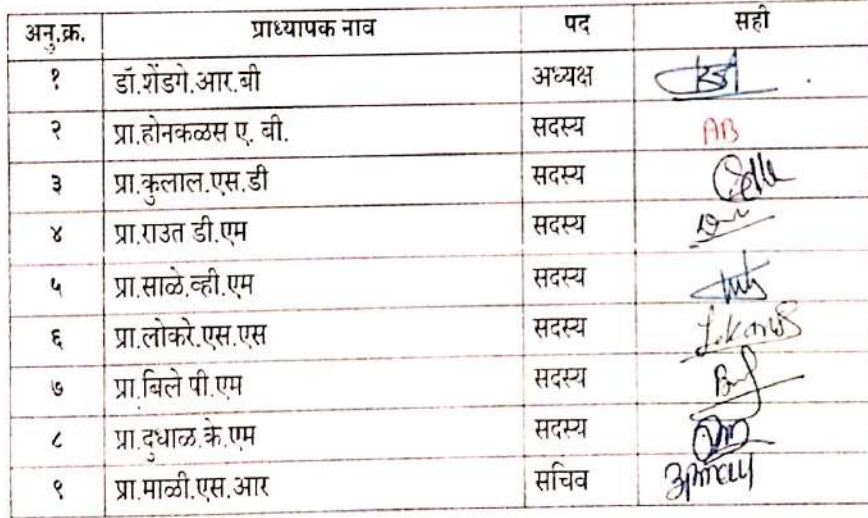 अनु.क्र. प्राध्यापक नाव पद सही
१ डॉ.शेंडगे.आर.बी अध्यक्ष
२ प्रा.होनकळस ए. बी. सदस्य AB
३ प्रा.कुलाल.एस.डी सदस्य
४ प्रा.राउत डी.एम सदस्य
५ प्रा.साळे.व्ही.एम सदस्य
६ प्रा.लोकरे.एस.एस सदस्य
७ प्रा.बिले पी.एम सदस्य
८ प्रा.दुधाळ.के.एम सदस्य
९ प्रा.माळी.एस.आर सचिव